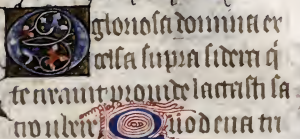 O gloriosa domina ex
celsa supra sidera q̄
te creavit provide lactasti sa
cro ubere Quod eva tri